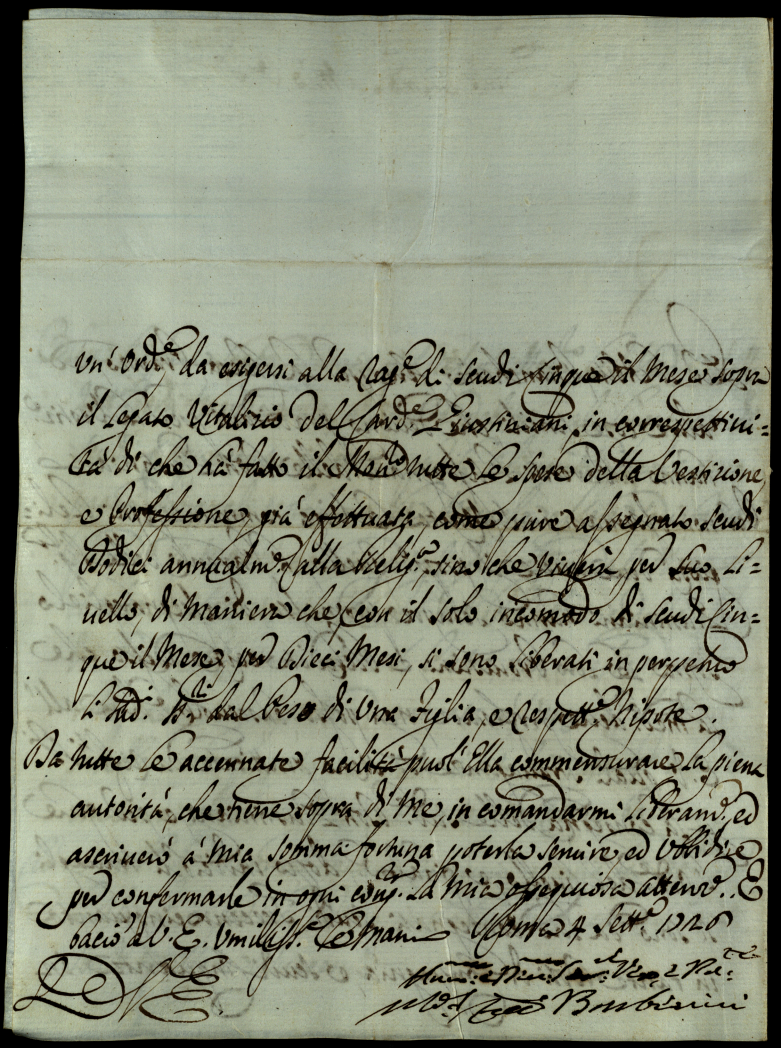 un' Ord.e da esigersi alla rag.e di scudi Cinque il Mese sopra
il Legato Vitalizio del Card.e Giustiniani, in correspettivi=
tà di che hà fatto il tutte le spese della Vestizione,
e Professione, già effettuata, come pure assegnato scudi
Dodici annualm.e alla Relig.a, sino che viverà, per suo Li=
vello, di Maniera che, con il solo incomodo di scudi Cin=
que il Mese, per Dieci Mesi, si sono liberati in perpetuo
li dal Peso di Una Figlia, e respett.e Nipote.
Da tutte le accennate facilità può Ella commensurare la piena
autorità, che tiene sopra di Me, in comandarmi Liberam.e, ed
ascriverò à mia somma fortuna poterla servire, ed Ubbidire
per confermarle in ogni la mia ossequiosa attenz.e. E
bacio a V. E. Umiliss.e le Mani Roma 4 Sett.e 1726
D V E